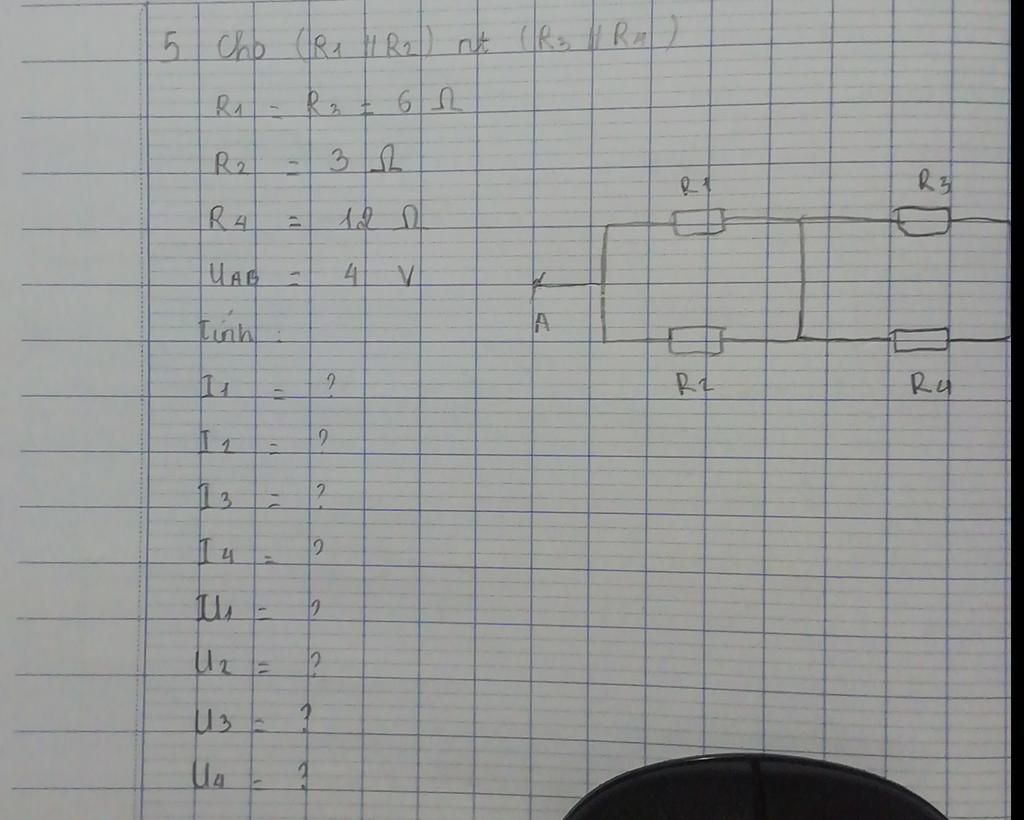 5 Cho (R1 // R2) nt (R3 // R4)
R1 = R3 = 6 Ω
R2 = 3 Ω
R4 = 12 Ω
UAB = 4 V
Tính :
I1 = ?
I2 = ?
I3 = ?
I4 = ?
U1 = ?
U2 = ?
U3 = ?
U4 = ?
R1 R3
A
R2 R4